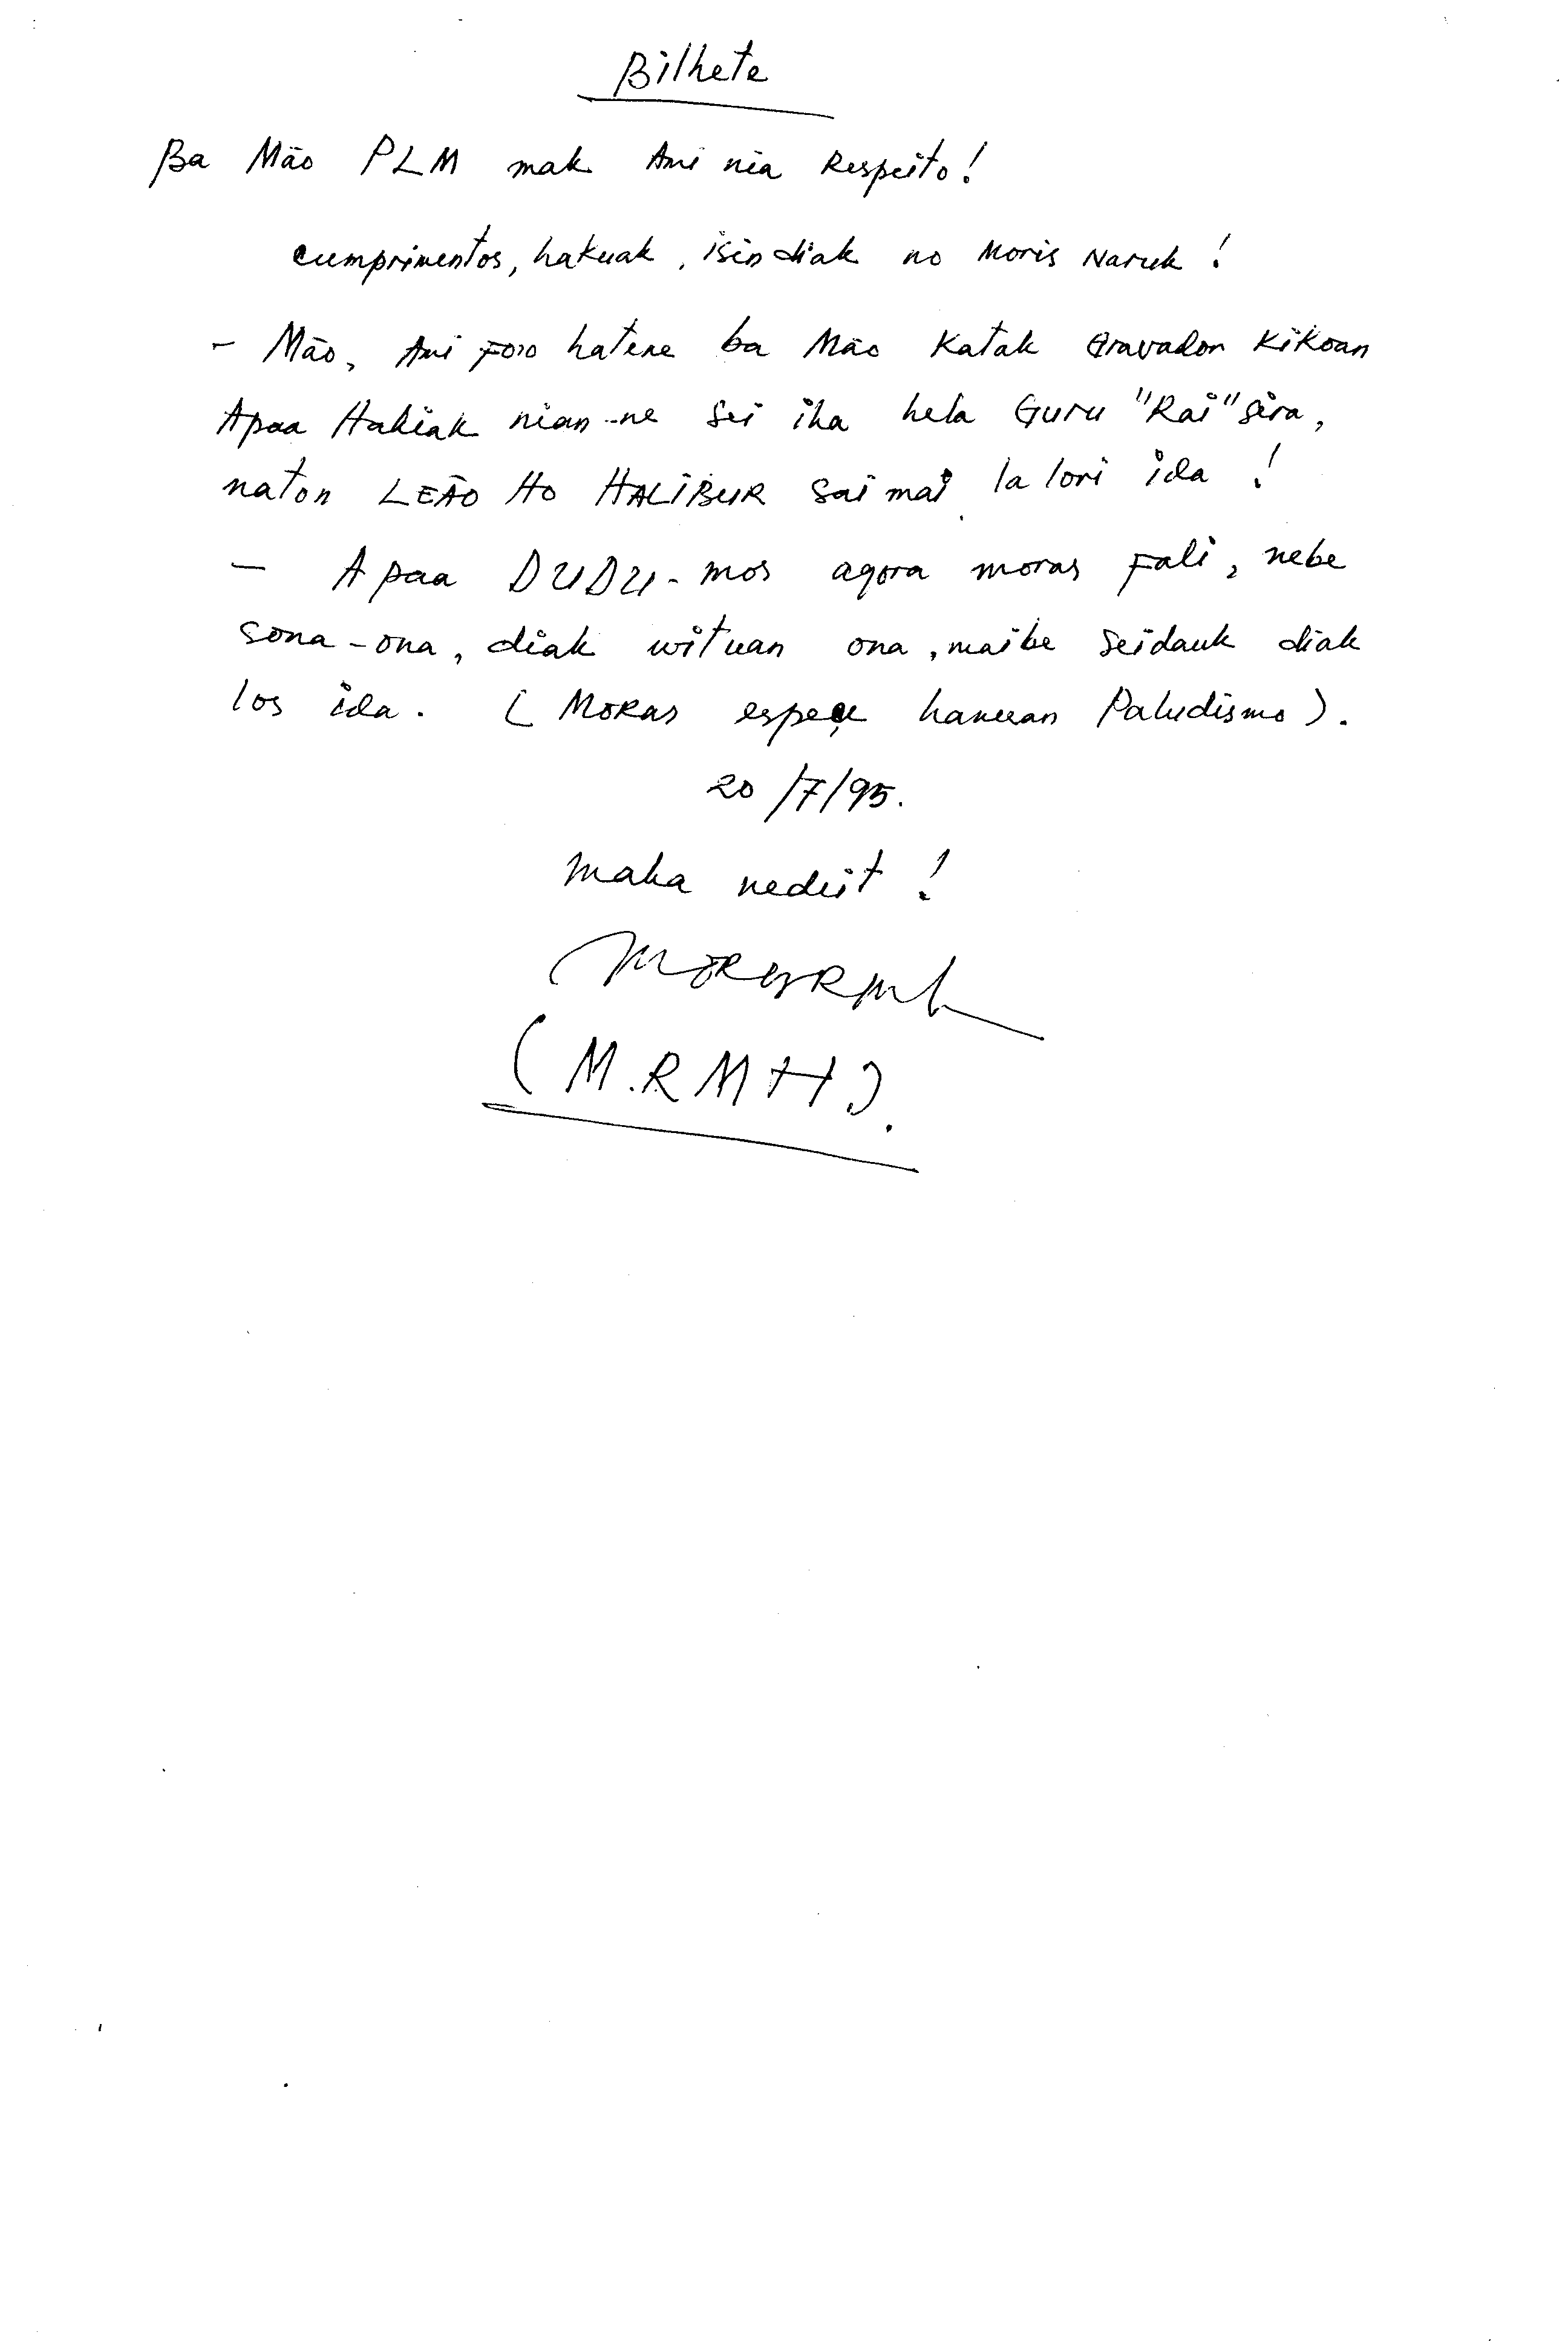 Bilhete
Ba Mão PLM mak Ami nia Respeito!
Cumprimentos, hakuak, isin diak no Moris Naruk!
- Mão, Ami Foo hatene ba Mão Katak Gravador Kikoan
Apaa Haliak nian-ne sei iha hela Guru "Rai" sira,
naton LEÃO HO HALIBUR sai mai la lori ida!
- Apaa DUDU-mos agora moras Fali, nebe
sona-ona, diak wituan ona, maibe seidauk diak
los ida. (Moras hanuan Paludismo).
20/7/95.
Maka nedeit!
(M.RMH).